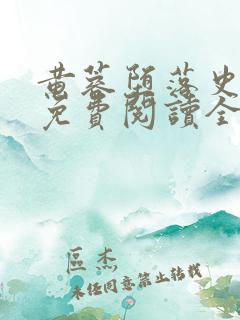 黄蓉堕落史
免費閱讀全
區杰
未经同意禁止转载